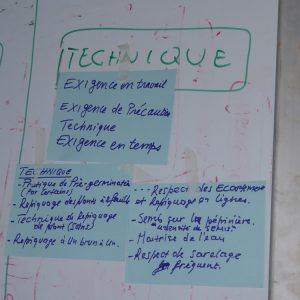 TECHNIQUE
Exigence en travail
Exigence de Précaution
Technique
Exigence en temps
TECHNIQUE
- Pratique de Pré-germination
(par certains)
- Repiquage des plants à feuille
- Technique de Repiquage
de plant (soins)
- Repiquage à un brin à un.
... Respect des Ecartement
et Repiquage en lignes.
- Semis sur la pépinière.
densité de semis
- Maitrise de l'eau
- Respect de sarclage
fréquent.